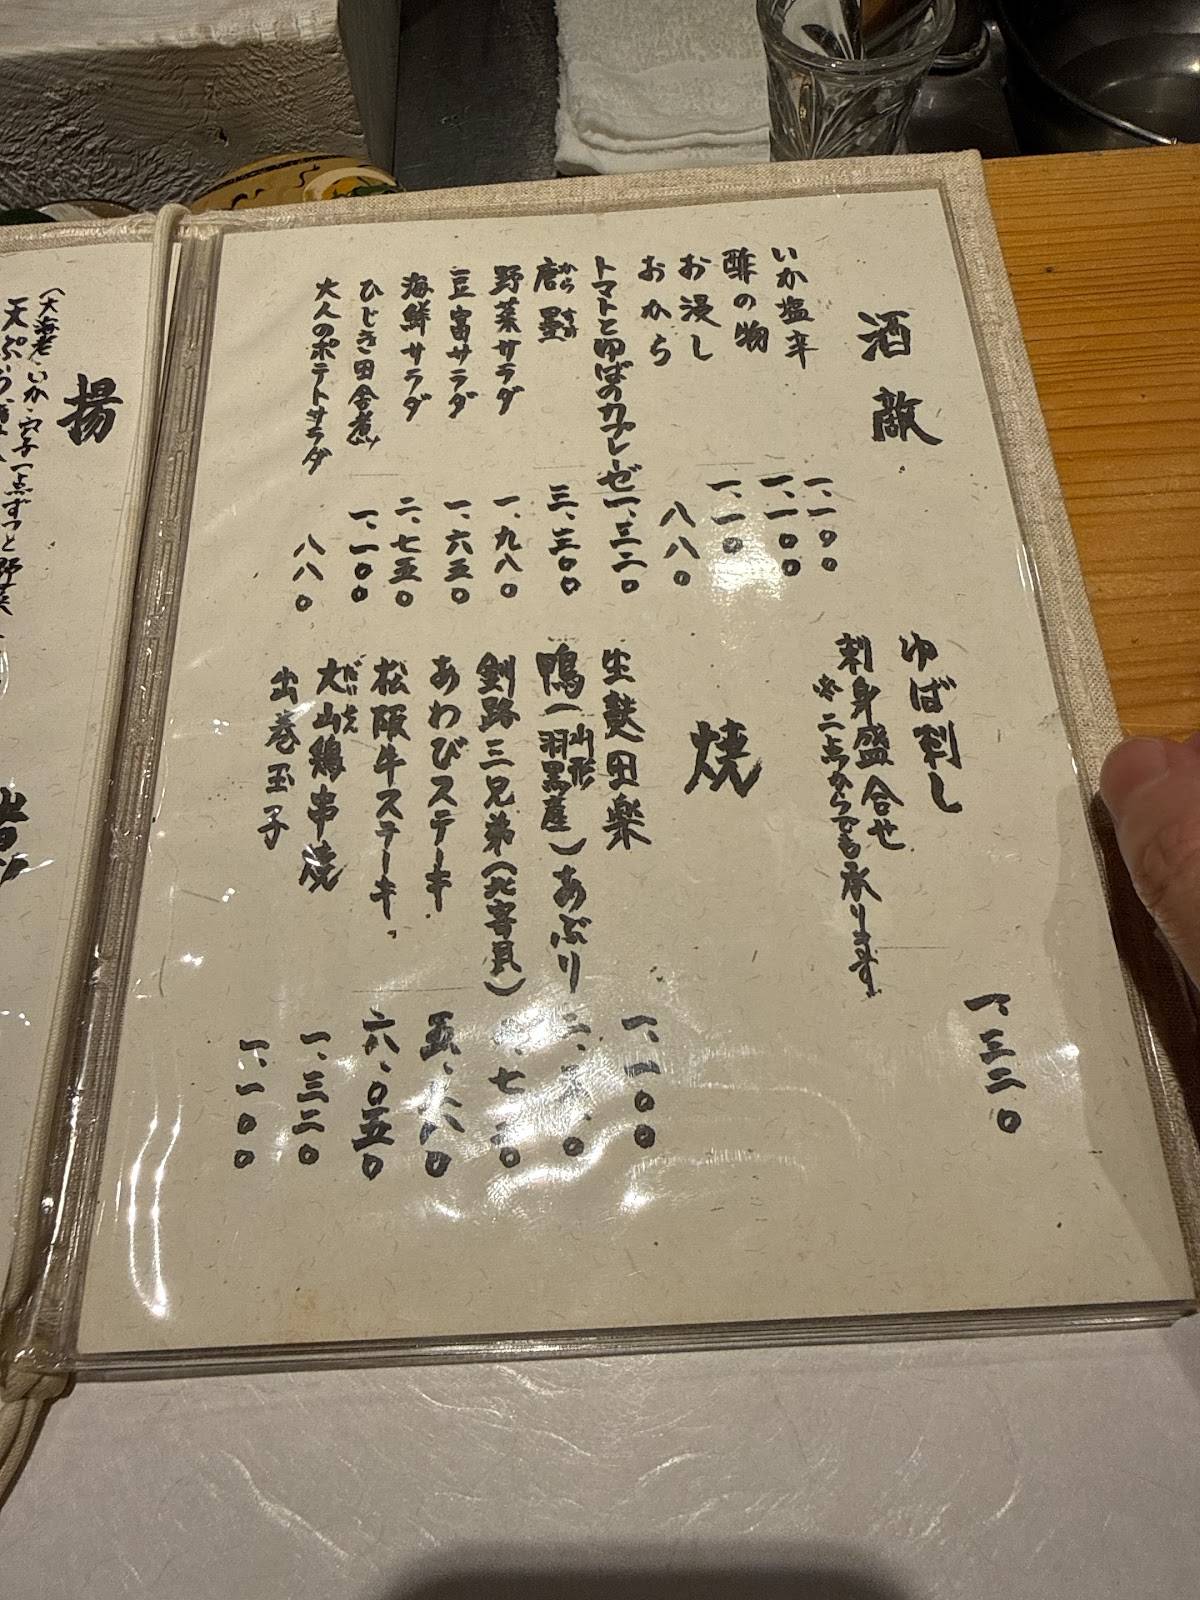 酒敵
いか塩辛 一、一〇〇
酢の物 一、一〇〇
お浸し 一、一〇
おから 八八〇
トマトとゆばのカプレーゼ 一、三二〇
唐墨 からすみ 三、三〇〇
野菜サラダ 一、九八〇
豆富サラダ 一、六五〇
海鮮サラダ 二、七五〇
ひじき田舎煮 一、一〇〇
大人のポテトサラダ 八八〇
ゆば刺し 一、三二〇
刺身盛合せ
※二点からでも承ります
焼
生麩田楽 一、一〇〇
鴨(山形羽黒産)あぶり
釧路三兄弟(北寄貝)
あわびステーキ
松阪牛ステーキ 六、〇五〇
大山鶏串焼 だいせん 一、三二〇
出巻玉子 一、一〇〇
揚
天ぷら
(大海老・いか・穴子一点ずつと野菜